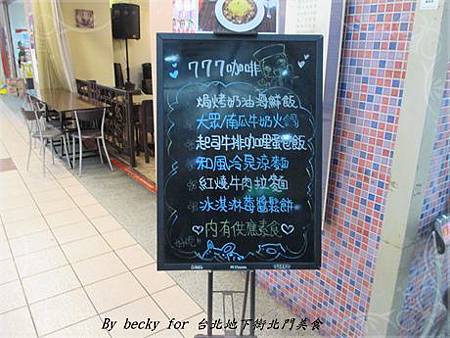 777咖啡
焗烤奶油海鮮飯
大眾南瓜牛奶火鍋
起司牛排咖哩蛋包飯
和風冷見涼麵
紅燒牛肉拉麵
冰淇淋莓醬鬆餅
內有供應素食
By becky for 台北地下街北門美食